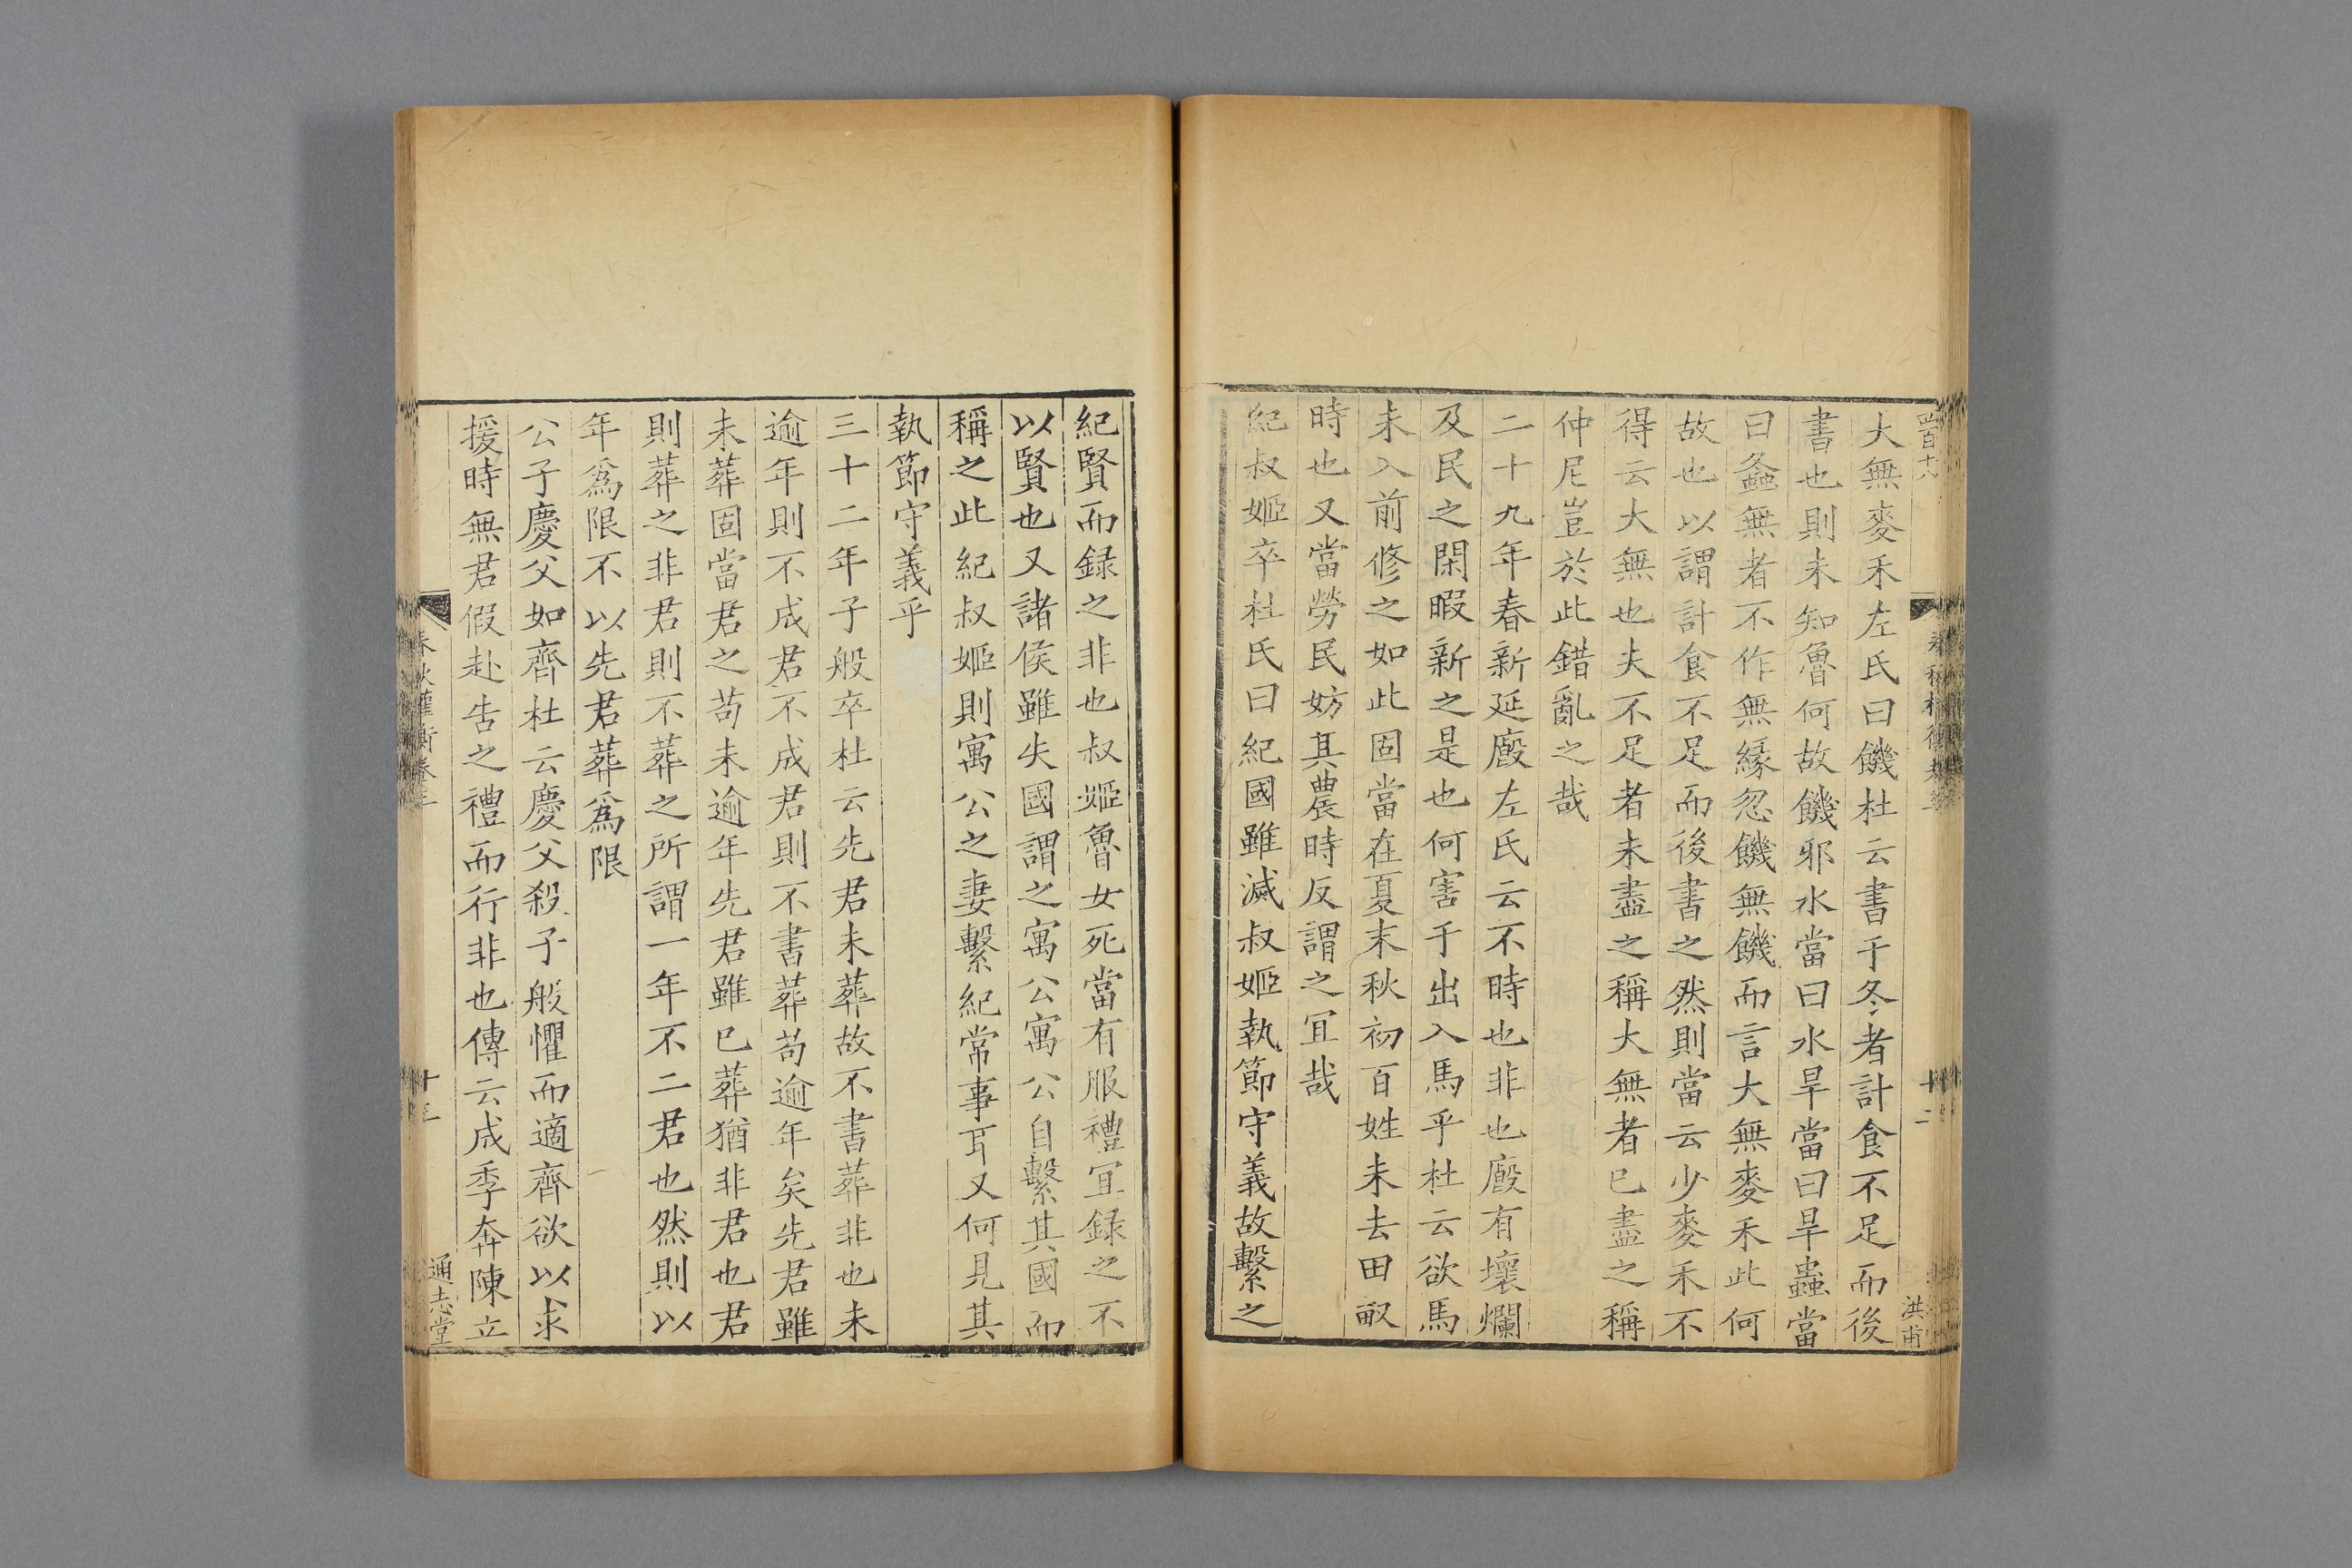 大無麥禾左氏曰饑杜云書于冬者計食不足而後
書也則未知魯何故饑邪水當曰水旱當曰旱蟲當
曰螽無者不作無緣忽饑無饑而言大無麥禾此何
故也以謂計食不足而後書之然則當云少麥禾不
得云大無也夫不足者未盡之稱大無者已盡之稱
仲尼豈於此錯亂之哉
二十九年春新延廏左氏云不時也非也廏有壞爛
及民之閑暇新之是也何害于出入馬乎杜云欲馬
未入前修之如此固當在夏末秋初百姓未去田畝
時也又當勞民妨其農時反謂之冝哉
紀叔姬卒杜氏曰紀國雖滅叔姬執節守義故繫之
紀賢而録之非也叔姬魯女死當有服禮冝録之不
以賢也又諸侯雖失國謂之寓公寓公自繫其國而
稱之此紀叔姬則寓公之妻繫紀常事耳又何見其
執節守義乎
三十二年子般卒杜云先君未葬故不書葬非也未
逾年則不成君不成君則不書葬苟逾年矣先君雖
未葬固當君之苟未逾年先君雖已葬猶非君也君
則葬之非君則不葬之所謂一年不二君也然則以
年爲限不以先君葬爲限
公子慶父如齊杜云慶父殺子般懼而適齊欲以求
援時無君假赴告之禮而行非也傳云成季奔陳立
春秋權衡卷三
十三
通志堂
四百十八
十二
洪甫